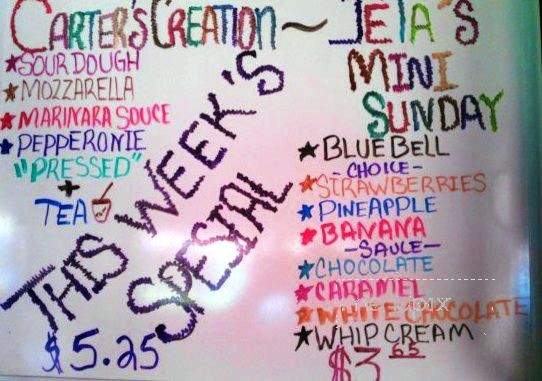 CARTER'S CREATION ~ JETA'S
MINI
SUNDAY
★ SOUR DOUGH
★ MOZZARELLA
★ MARINARA SOUCE
★ PEPPERONIE
"PRESSED"
+
TEA
THIS WEEK'S
SPESIAL
$5.25
★ BLUE BELL
- CHOICE -
★ STRAWBERRIES
★ PINEAPPLE
★ BANANA
- SAUCE -
★ CHOCOLATE
★ CARAMEL
★ WHITE CHOCOLATE
★ WHIP CREAM
$3.65